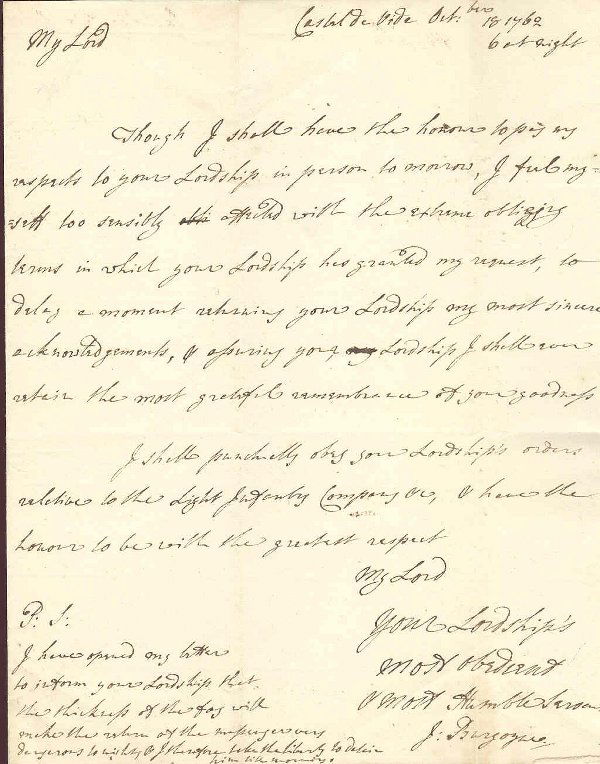 Castel de Vide Oct.ber 18 1762
6 at night
My Lord
Though I shall have the honour to pay my
respects to your Lordship in person to morrow, I feel my=
=self too sensibly affected with the extreme obliging
terms in which your Lordship has granted my request, to
delay a moment returning your Lordship my most sincere
acknowledgements, & assuring your Lordship I shall ever
retain the most grateful remembrance of your goodness
I shall punctually obey your Lordship's orders
relative to the Light Infantry Company &c, & have the
honour to be with the greatest respect
My Lord
Your Lordship's
most obedient
& most Humble Servan
J: Burgoyne
P: S:
I have opened my letter
to inform your Lordship that
the thickness of the fog will
make the return of the messenger very
dangerous to night & I therefore take the liberty to detain
him till morning.